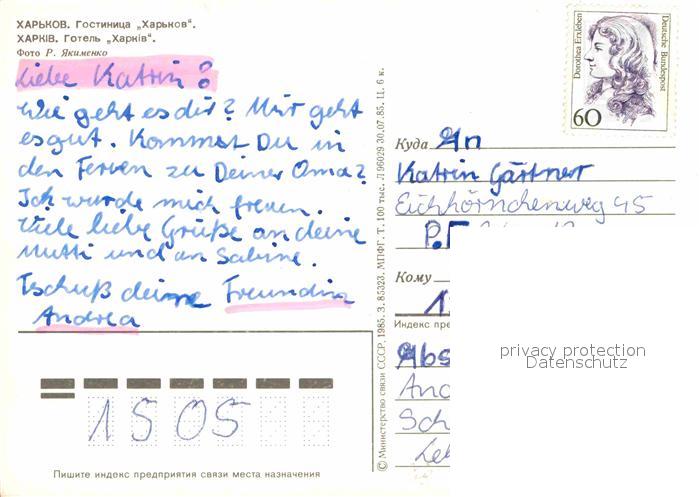 ХАРЬКОВ. Гостиница „Харьков“.
ХАРКІВ. Готель „Харків“.
Фото Р. Якименко
Liebe Katrin!
Wie geht es dir? Mir geht
es gut. Kommst Du in
den Ferien zu Deiner Oma?
Ich würde mich freuen.
Viele liebe Grüße an deine
Mutti und an Sabine.
Tschuß deine Freundin
Andrea
1505
Пишите индекс предприятия связи места назначения
© Министерство связи СССР, 1985. З. 85323. МПФГ. Т. 100 тыс. Л 96029 30.07.85. Ц. 6 к.
Dorothea Erxleben
Deutsche Bundespost
60
Куда An
Katrin Gärtner
Eichhörnchenweg 45
Кому
Индекс пре
Abs
And
Sch
privacy protection
Datenschutz